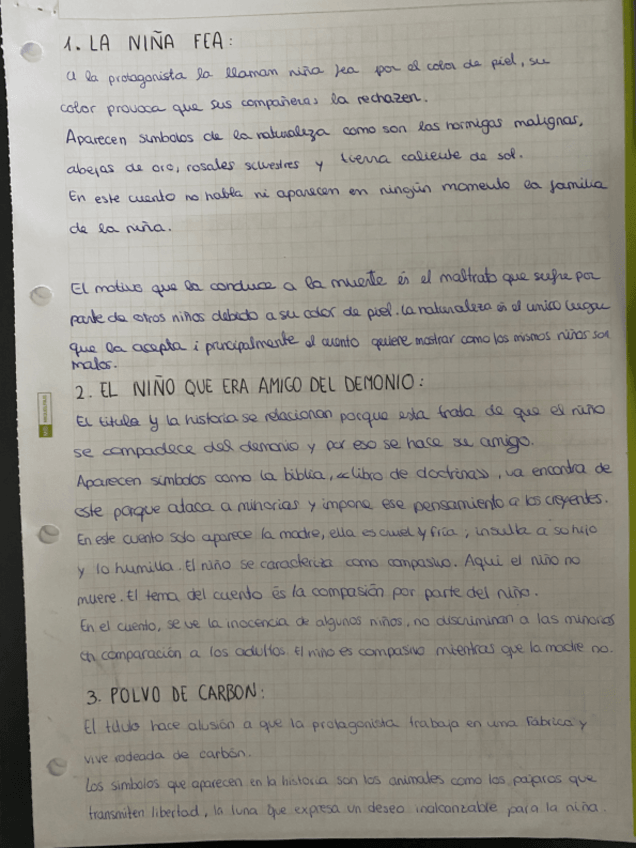 1. LA NIÑA FEA:
a la protagonista la llaman niña fea por el color de piel, su
color provoca que sus compañeras la rechazen.
Aparecen simbolos de la naturaleza como son las hormigas malignas,
abejas de oro, rosales silvestres y tierra caliente de sol.
En este cuento no habla ni aparecen en ningún momento la familia
de la niña.
El motivo que la conduce a la muerte es el maltrato que sufre por
parte de otros niños debido a su color de piel. La naturaleza es el unico lugar
que la acepta i principalmente el cuento quiere mostrar como los mismos niños son
malos.
2. EL NIÑO QUE ERA AMIGO DEL DEMONIO:
El titulo y la historia se relacionan porque esta trata de que el niño
se compadece del demonio y por eso se hace su amigo.
Aparecen símbolos como la biblia, «libro de doctrinas», va encontra de
este porque ataca a minorias y impone ese pensamiento a los creyentes.
En este cuento solo aparece la madre, ella es cruel y fría, insulta a su hijo
y lo humilla. El niño se caracteriza como compasivo. Aqui el niño no
muere. El tema del cuento es la compasión por parte del niño.
En el cuento, se ve la inocencia de algunos niños, no discriminan a las minorias
en comparación a los adultos. El niño es compasivo mientras que la madre no.
3. POLVO DE CARBON:
El titulo hace alusión a que la protagonista trabaja en una fabrica y
vive rodeada de carbón.
Los simbolos que aparecen en la historia son los animales como los pajaros que
transmiten libertad, la luna que expresa un deseo inalcanzable para la niña.